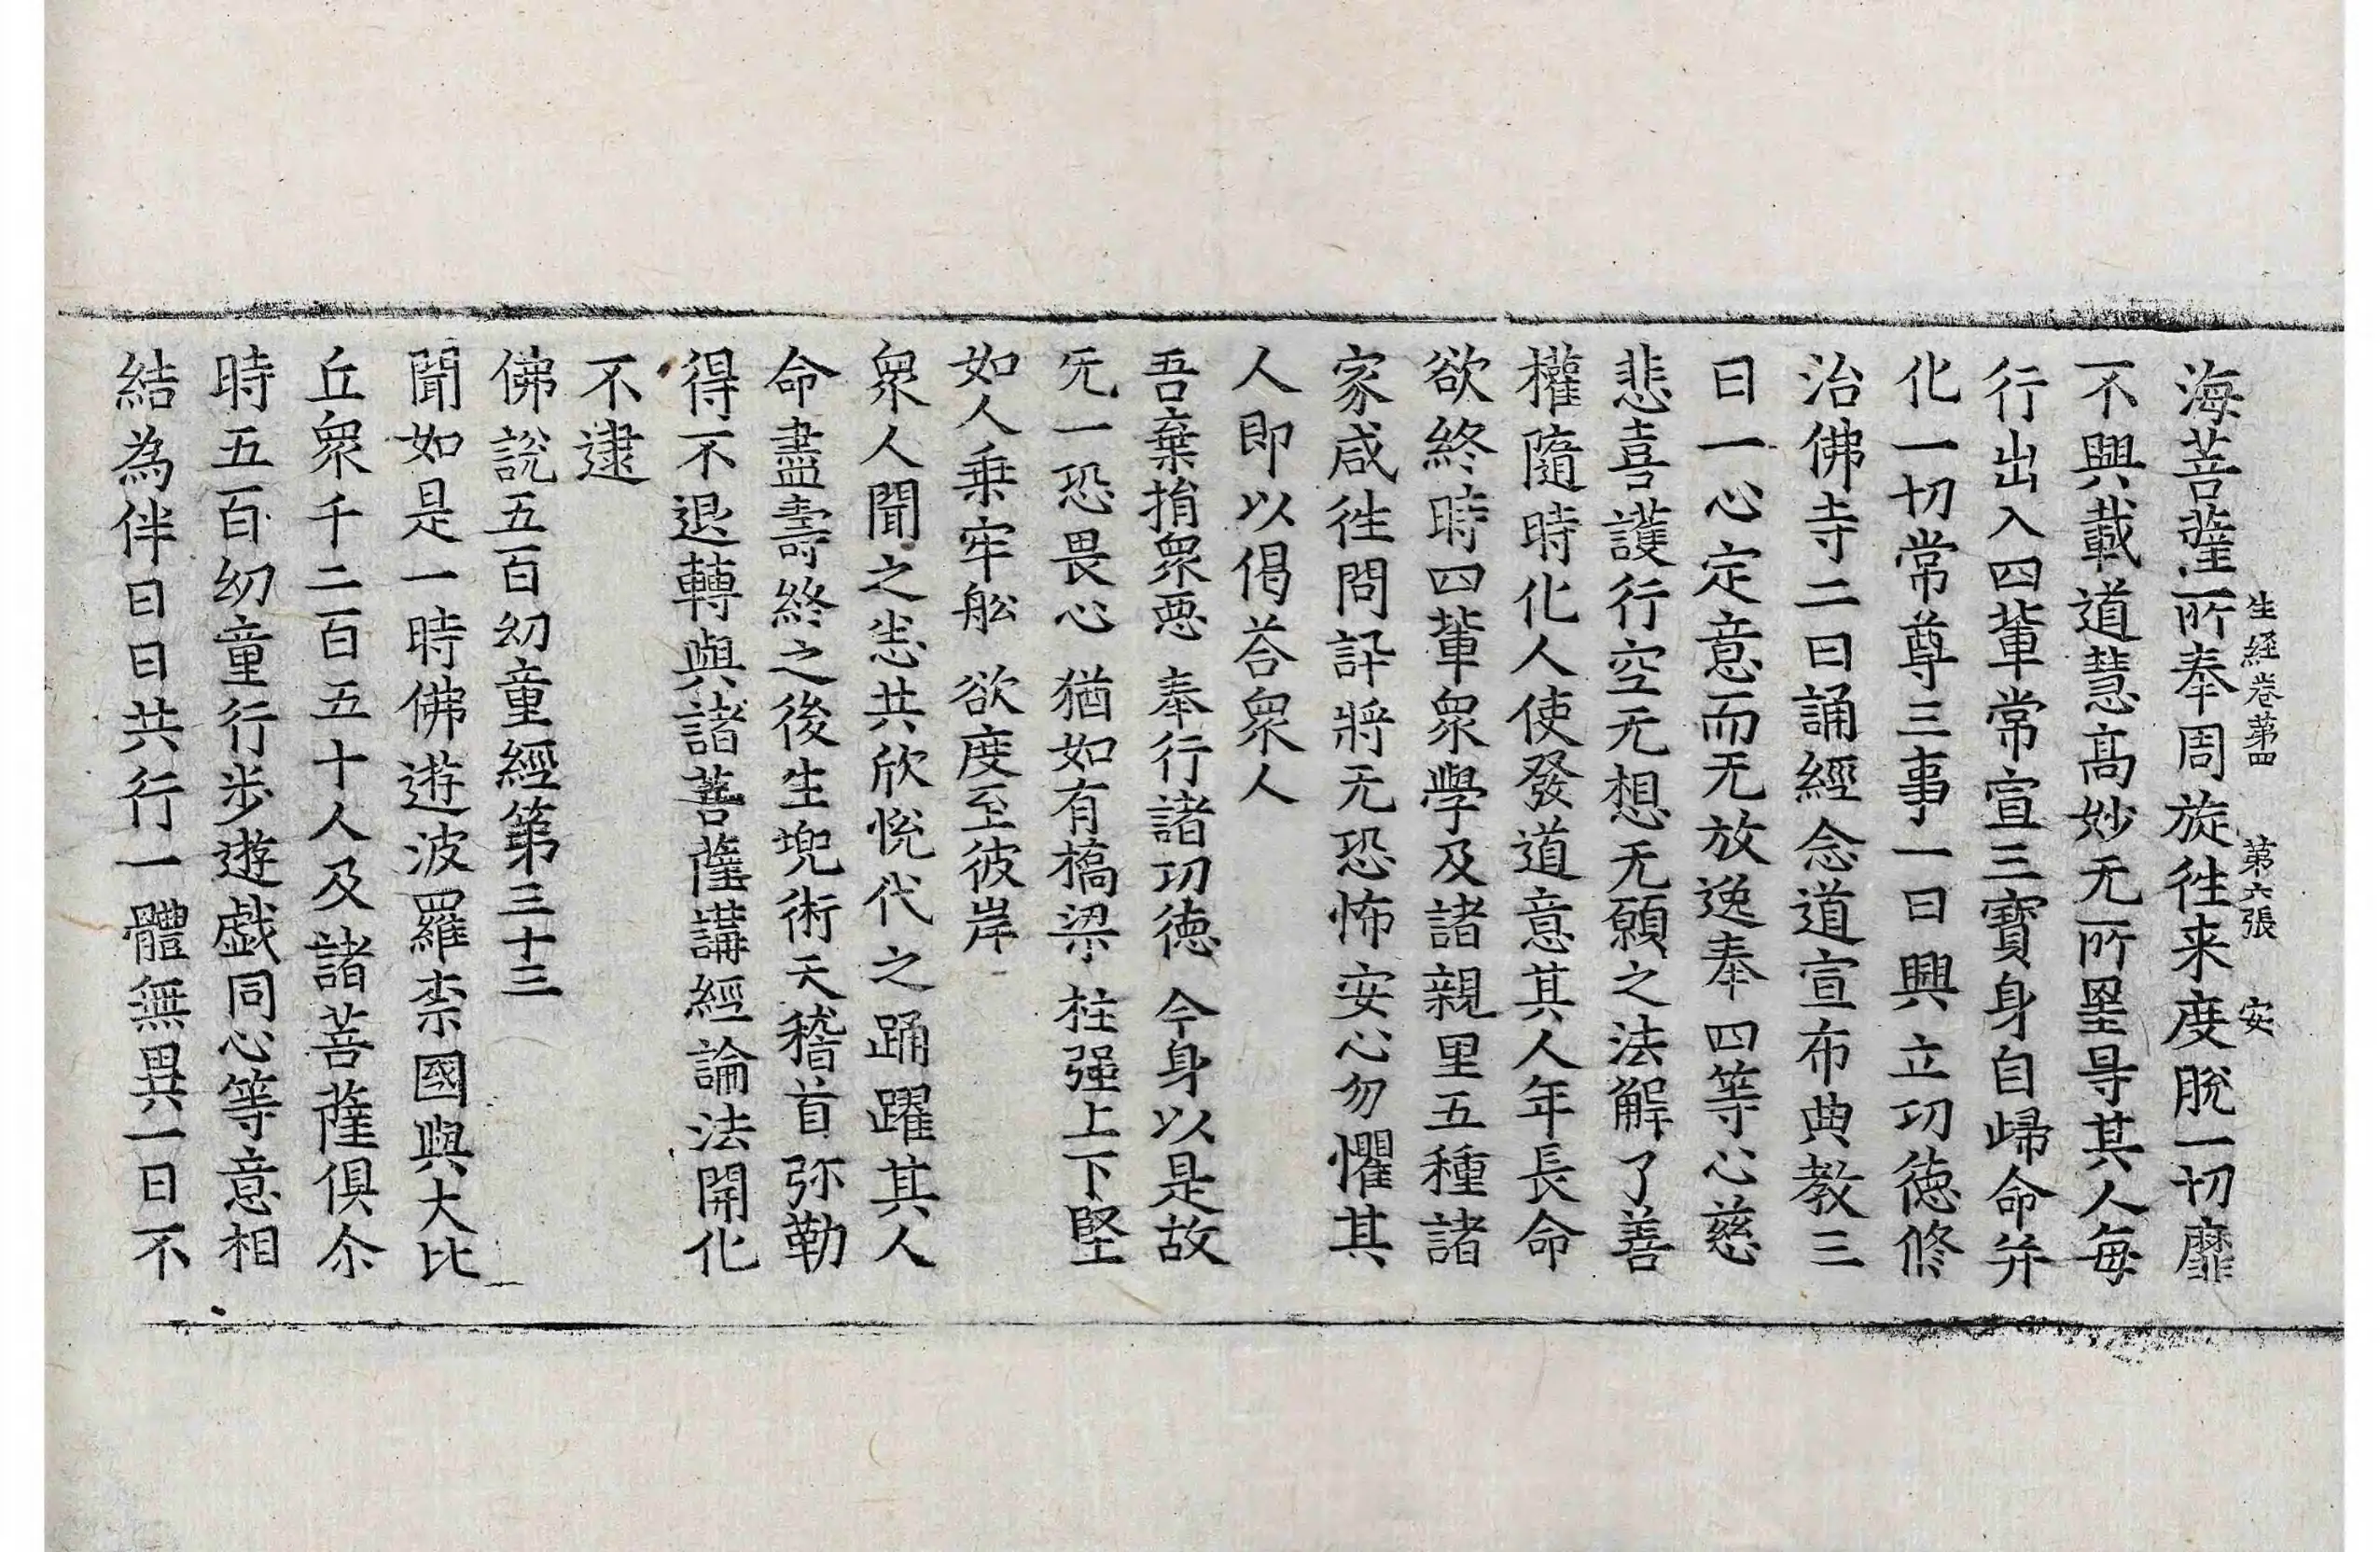 生經卷第四　第六張　安
海菩薩所奉周旋徃来度脫一切靡
不興載道慧高妙无所罣㝵其人每
行出入四輩常宣三寶身自歸命并
化一切常尊三事一曰興立功德修
治佛寺二曰誦經念道宣布典教三
曰一心定意而无放逸奉四等心慈
悲喜護行空无想无願之法解了善
權隨時化人使發道意其人年長命
欲終時四輩衆學及諸親里五種諸
家咸徃問訊將无恐怖安心勿懼其
人即以偈荅衆人
吾棄捐衆惡　奉行諸功德　今身以是故
无一恐畏心　猶如有橋梁　柱强上下堅
如人乘牢舩　欲度至彼岸
衆人聞之悉共欣恱代之踊躍其人
命盡壽終之後生兜術天稽首弥勒
得不退轉與諸菩薩講經論法開化
不逮
佛說五百幼童經第三十三
聞如是一時佛遊波羅柰國與大比
丘衆千二百五十人及諸菩薩俱尒
時五百幼童行步遊戱同心等意相
結為伴日日共行一體無異一日不